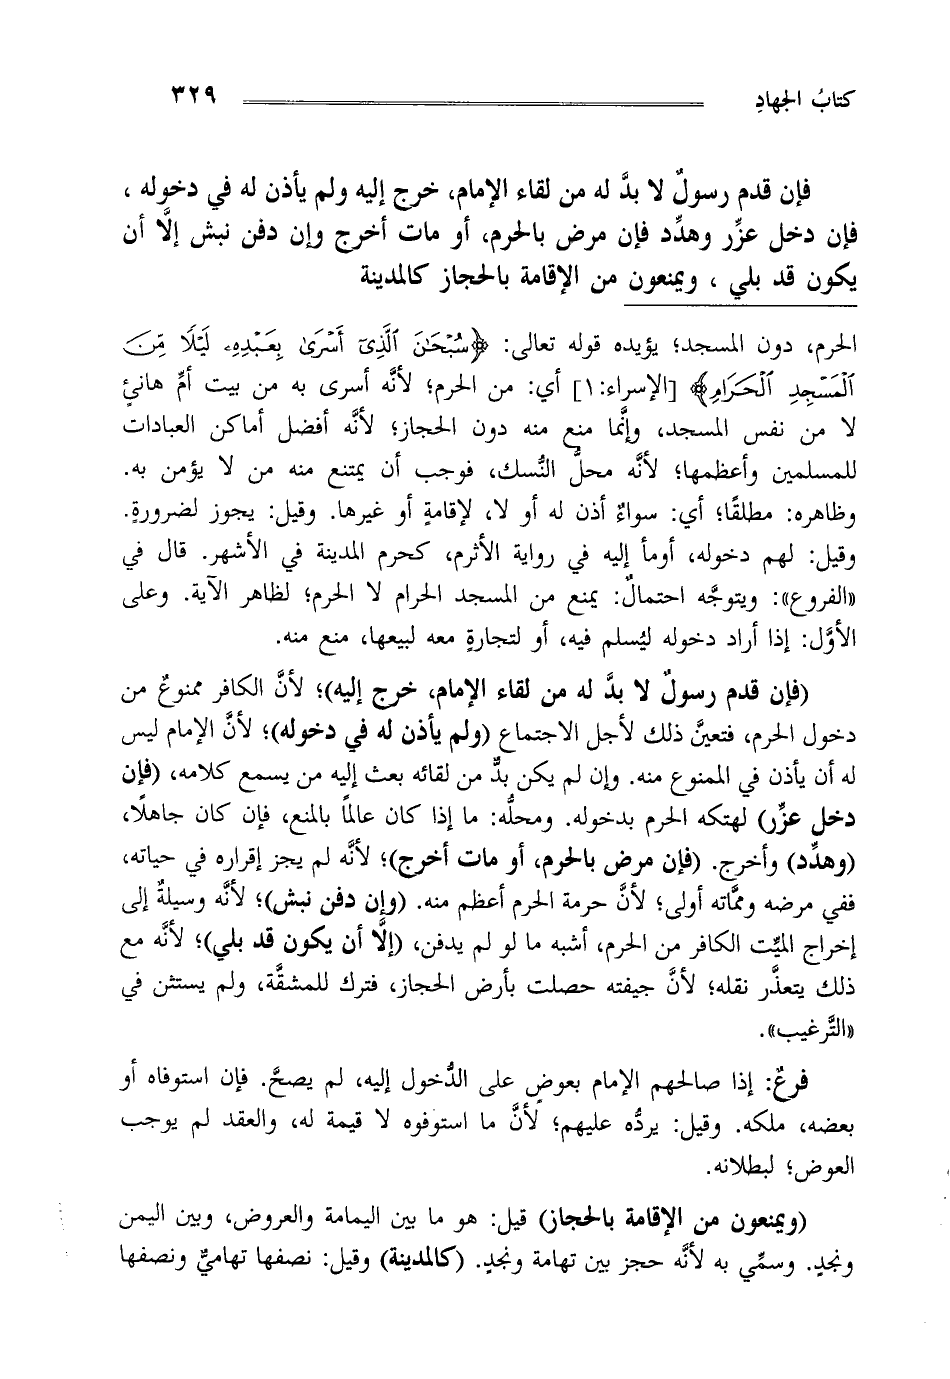 كتابُ الجهادِ ٣٢٩
فإن قدم رسولٌ لا بدَّ له من لقاء الإمام، خرج إليه ولم يأذن له في دخوله ،
فإن دخل عزِّر وهدِّد فإن مرض بالحرم، أو مات أخرج وإن دفن نبش إلَّا أن
يكون قد بلي ، ويمنعون من الإقامة بالحجاز كالمدينة
الحرم، دون المسجد؛ يؤيده قوله تعالى: ﴿سُبْحَٰنَ ٱلَّذِىٓ أَسْرَىٰ بِعَبْدِهِۦ لَيْلًا مِّنَ
ٱلْمَسْجِدِ ٱلْحَرَامِ﴾ [الإسراء: ١] أي: من الحرم؛ لأنَّه أسرى به من بيت أمِّ هانئٍ
لا من نفس المسجد، وإنَّما منع منه دون الحجاز؛ لأنَّه أفضل أماكن العبادات
للمسلمين وأعظمها؛ لأنَّه محلُّ النُّسك، فوجب أن يمتنع منه من لا يؤمن به.
وظاهره: مطلقًا؛ أي: سواءٌ أذن له أو لا، لإقامةٍ أو غيرها. وقيل: يجوز لضرورةٍ.
وقيل: لهم دخوله، أومأ إليه في رواية الأثرم، كحرم المدينة في الأشهر. قال في
«الفروع»: ويتوجَّه احتمالٌ: يمنع من المسجد الحرام لا الحرم؛ لظاهر الآية. وعلى
الأوَّل: إذا أراد دخوله ليُسلم فيه، أو لتجارةٍ معه لبيعها، منع منه.
(فإن قدم رسولٌ لا بدَّ له من لقاء الإمام، خرج إليه)؛ لأنَّ الكافر ممنوعٌ من
دخول الحرم، فتعينَّ ذلك لأجل الاجتماع (ولم يأذن له في دخوله)؛ لأنَّ الإمام ليس
له أن يأذن في الممنوع منه. وإن لم يكن بدٌّ من لقائه بعث إليه من يسمع كلامه، (فإن
دخل عزِّر) لهتكه الحرم بدخوله. ومحلُّه: ما إذا كان عالماً بالمنع، فإن كان جاهلًا،
(وهدِّد) وأخرج. (فإن مرض بالحرم، أو مات أخرج)؛ لأنَّه لم يجز إقراره في حياته،
ففي مرضه ومماَّته أولى؛ لأنَّ حرمة الحرم أعظم منه. (وإن دفن نبش)؛ لأنَّه وسيلةٌ إلى
إخراج الميِّت الكافر من الحرم، أشبه ما لو لم يدفن، (إلَّا أن يكون قد بلي)؛ لأنَّه مع
ذلك يتعذَّر نقله؛ لأنَّ جيفته حصلت بأرض الحجاز، فترك للمشقَّة، ولم يستثن في
«التَّرغيب».
فرعٌ: إذا صالحهم الإمام بعوضٍ على الدُّخول إليه، لم يصحَّ. فإن استوفاه أو
بعضه، ملكه. وقيل: يردُّه عليهم؛ لأنَّ ما استوفوه لا قيمة له، والعقد لم يوجب
العوض؛ لبطلانه.
(ويمنعون من الإقامة بالحجاز) قيل: هو ما بين اليمامة والعروض، وبين اليمن
ونجدٍ. وسمِّي به لأنَّه حجز بين تهامة ونجدٍ. (كالمدينة) وقيل: نصفها تهاميٌّ ونصفها